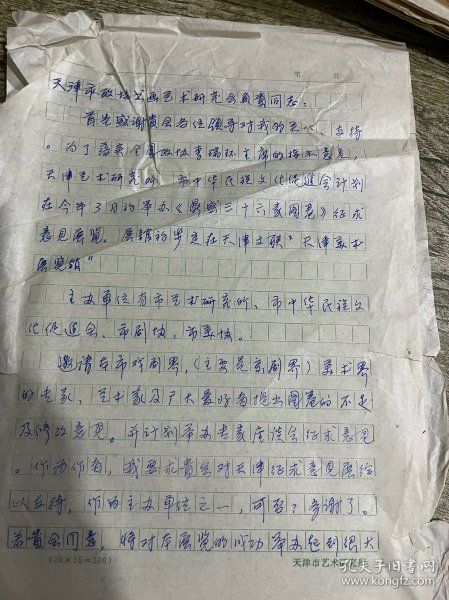 第 页
天津市政协书画艺术研究会负责同志：
首先感谢贵会各位领导对我的关心、支持
。为了落实全国政协李瑞环主席的指示意见，
天津艺术研究所、市中华民族文化促进会计划
在今年3月初举办《鼎盛三十六家图卷》征求
意见展览。展馆初步定在天津文联“天津美术
展览馆”
主办单位有市艺术研究所、市中华民族文
化促进会、市剧协、市美协。
邀请在市戏剧界，（主要是京剧界）美术界
的专家、艺术家及广大爱好者提出图卷的不足
及修改意见。并计划举办专家座谈会征求意见
。作为作者，我恳求贵会对天津征求意见展给
以支持，作为主办单位之一，可否？多谢了。
若贵会同意，将对本展览的成功举办起到很大
(20×15=300)
天津市艺术研究所
孔夫子旧书网